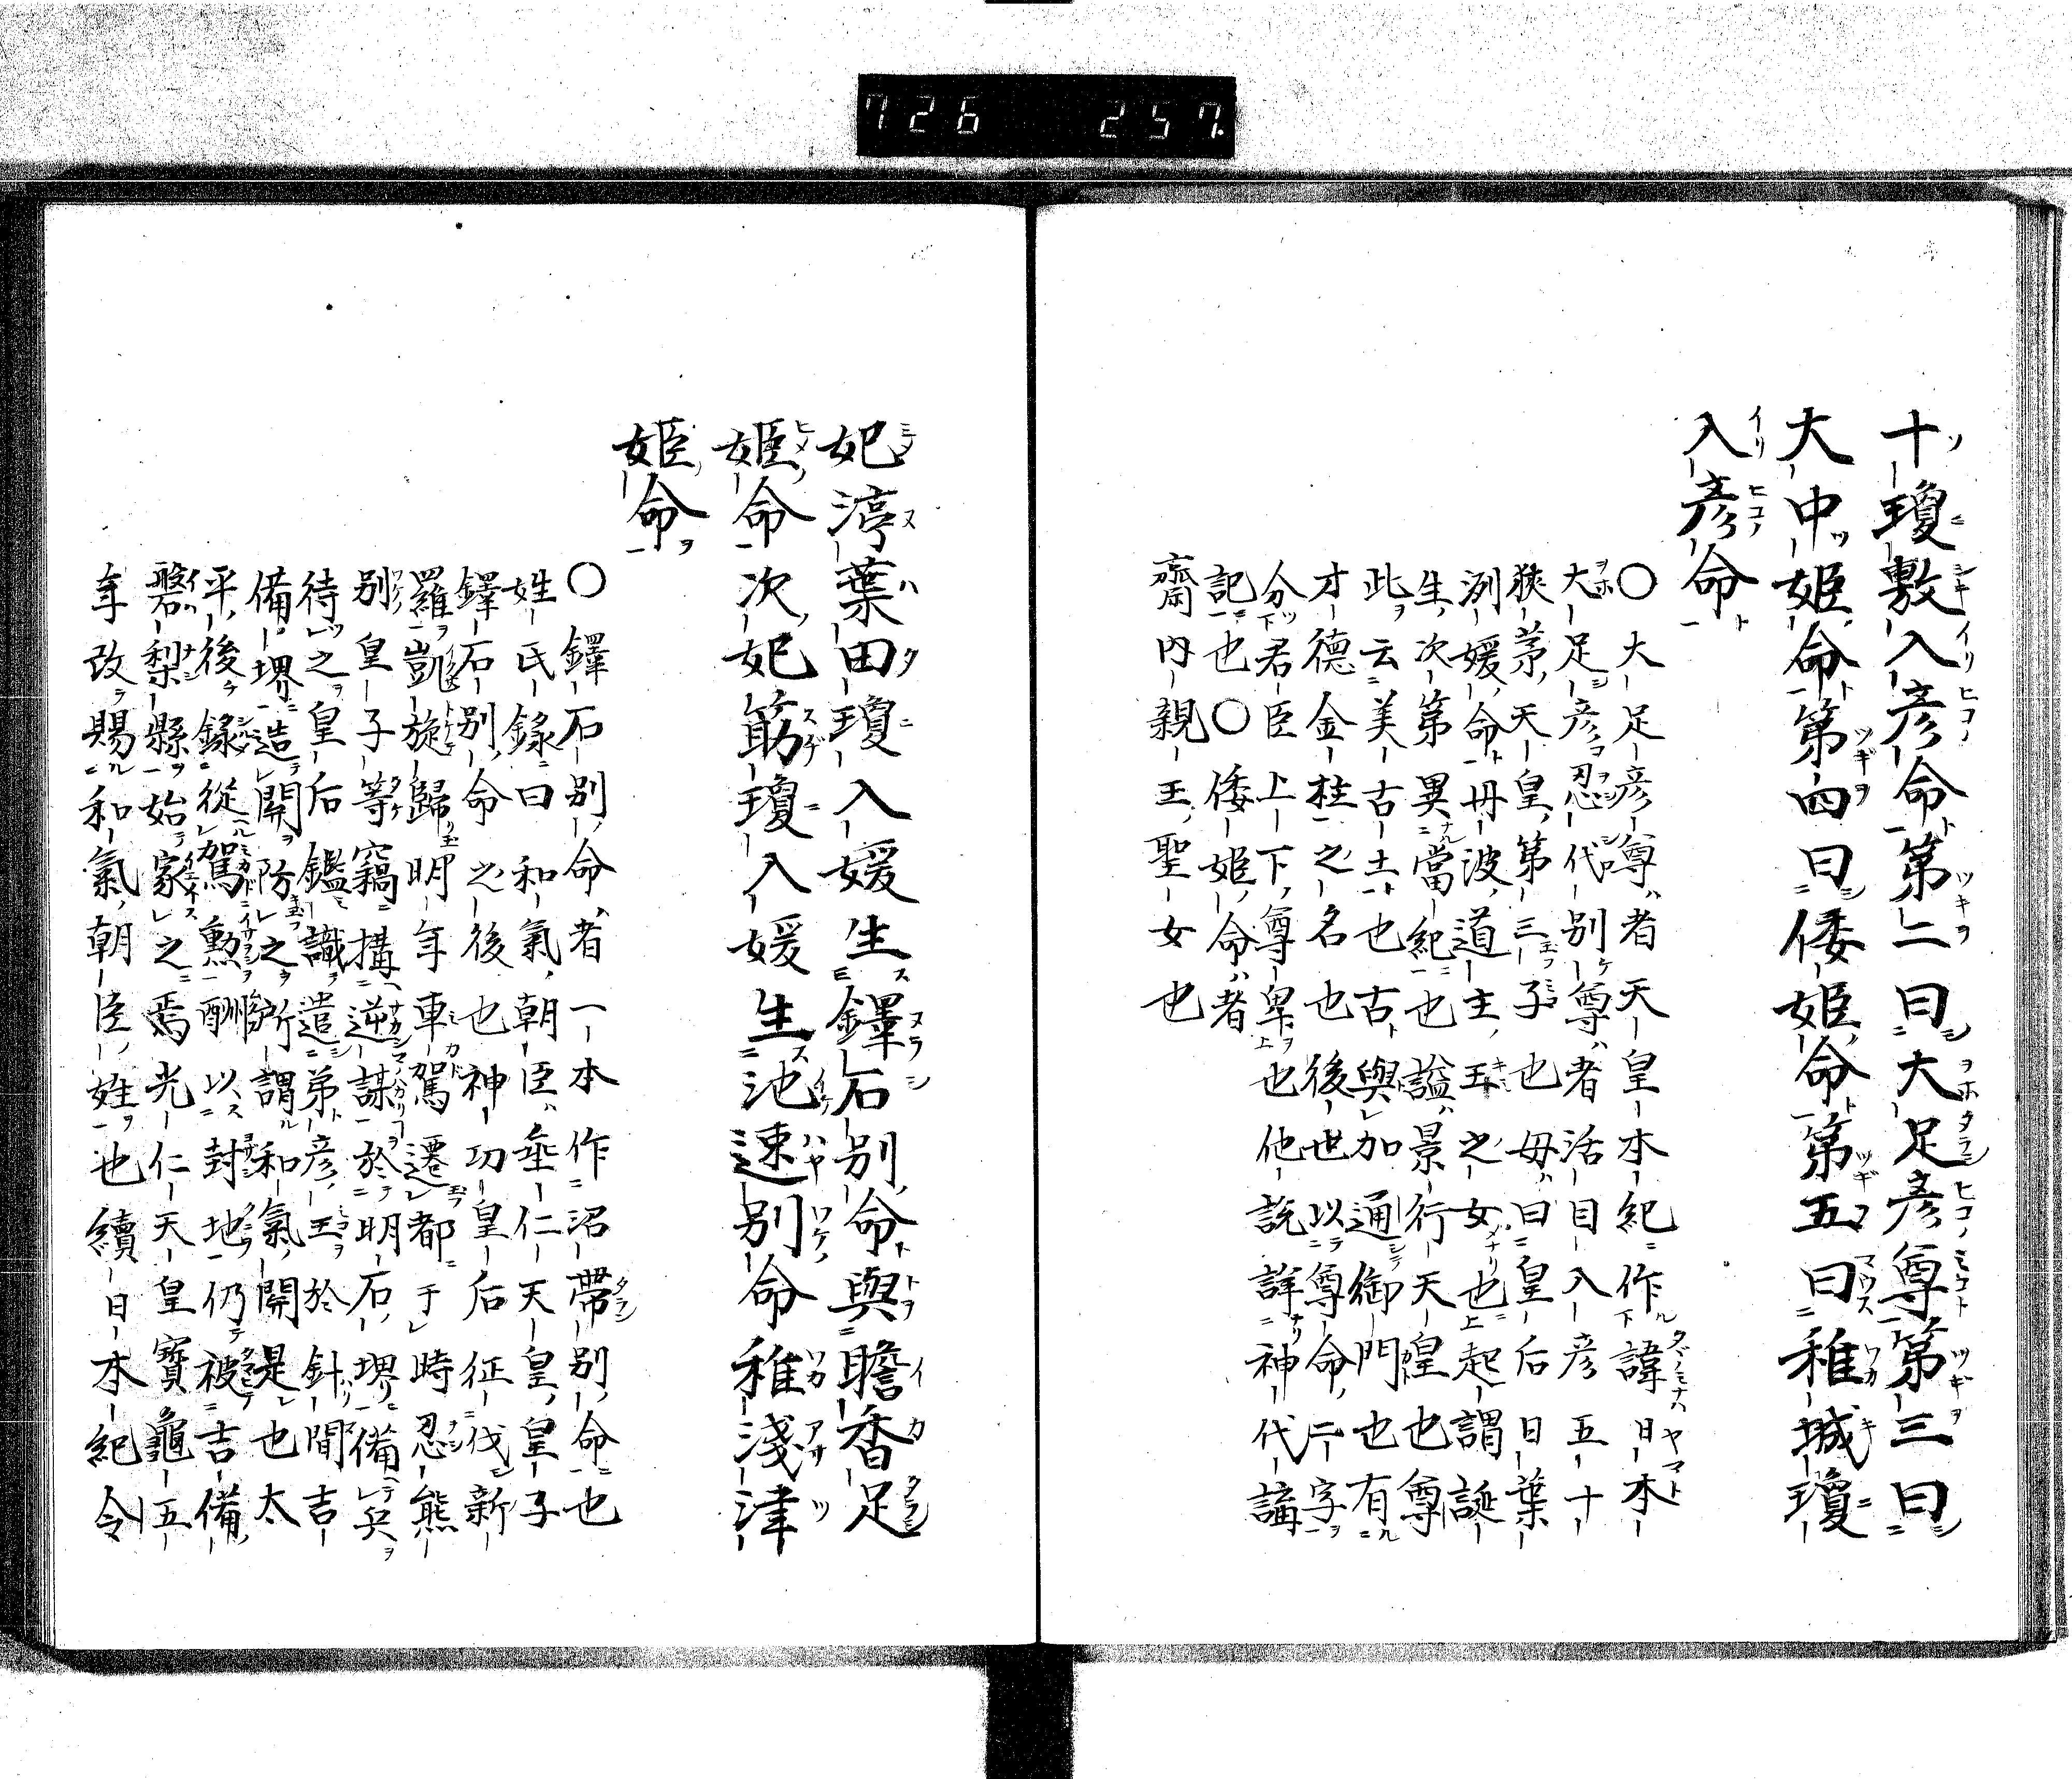 726 257.
十瓊敷入彦命第二曰大足彦尊第三曰
大中姫命第四曰倭姫命第五曰稚城瓊
入彦命
〇大足彦尊者天皇本紀作諱日本
大足彦忍代別尊者活目入彦五十
狹茅天皇第三子也母曰皇后日葉
洌媛命丹波道主王之女也起謂誕
生次第異當紀也諡景行天皇也尊
此云美古土也古與加通御門也有
才德金柱之名也後世以尊命二字
分君臣上下尊卑也他說詳神代講
記也〇倭姫命者
齋内親王聖女也
妃渟葉田瓊入媛生鐸石別命與膽香足
姫命次妃筯瓊入媛生池速別命稚淺津
姫命
〇鐸石別命者一本作沼帶別命也
姓氏錄曰和氣朝臣垂仁天皇皇子
鐸石別命之後也神功皇后征伐新
羅凱旋歸明年車駕遷都于時忍熊
別皇子等竊搆逆謀於明石堺備兵
待之皇后鑑識遣弟彦王於針間吉
備堺造開防之所謂和氣開是也太
平後錄從駕勲酬以封地仍被吉備
磐梨縣始家之焉光仁天皇寶龜五
年改賜和氣朝臣姓也續日本紀令